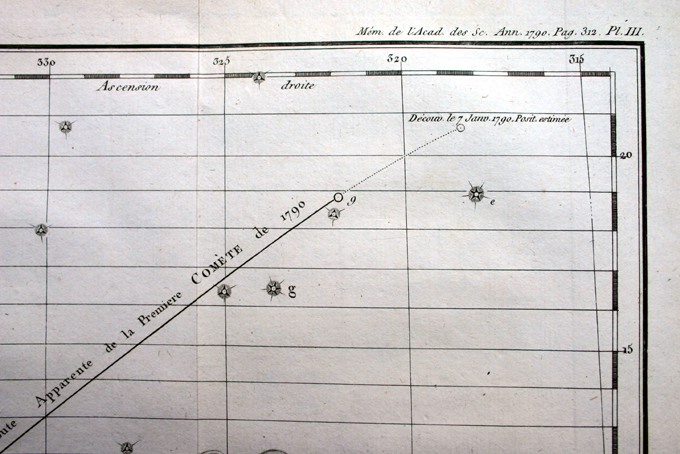 Mém. de l'Acad. des Sc. Ann. 1790. Pag. 312. Pl. III.
330 325 320 315
Ascension droite
Découv. le 7 Janv. 1790. Posit. estimée
20
9
e
g
15
Apparente de la Premiere COMÈTE de 1790